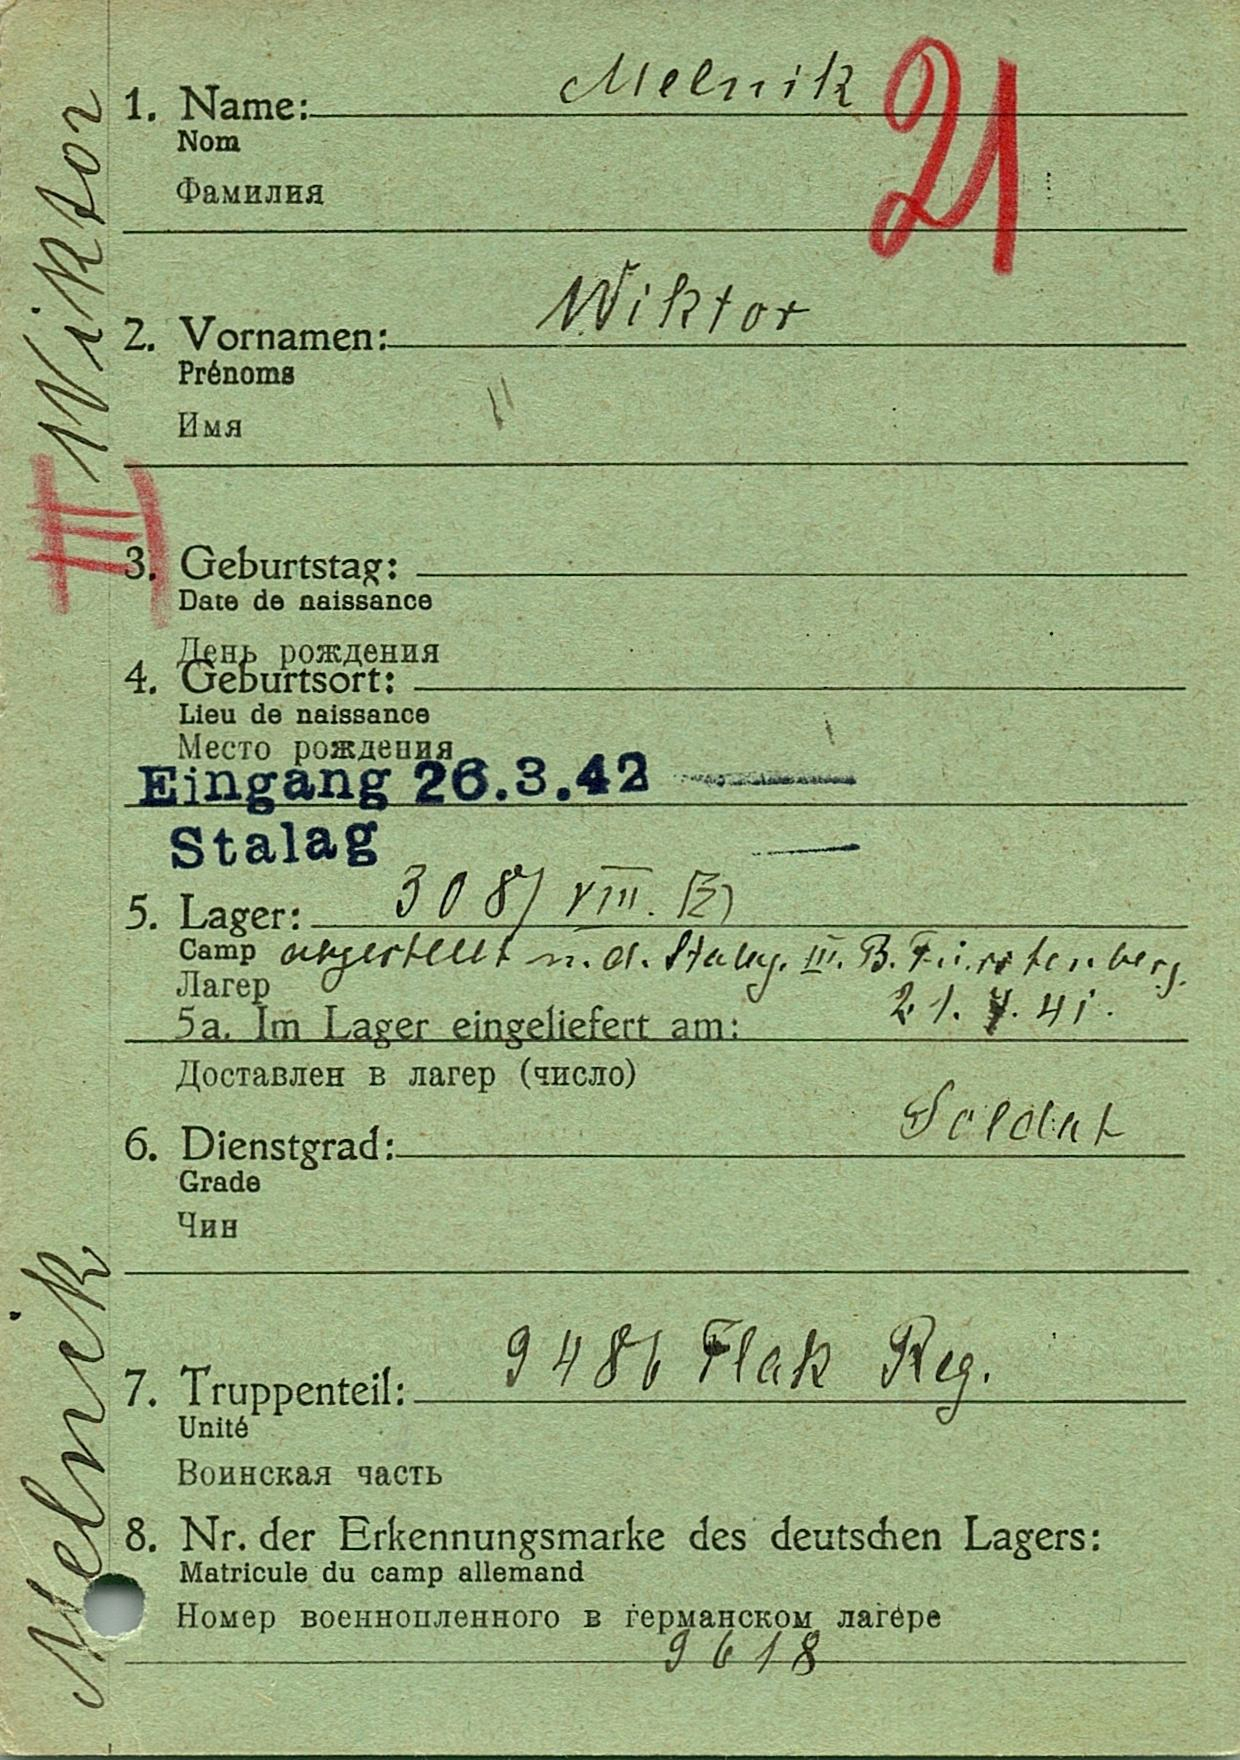 Melnik
21
1. Name:
Nom
Фамилия
Wiktor
2. Vornamen:
Prénoms
Имя
III
3. Geburtstag:
Date de naissance
День рождения
4. Geburtsort:
Lieu de naissance
Место рождения
Eingang 26.3.42
Stalag
5. Lager: 308/ VIII. E)
Camp abgestellt n. d. Stalag. III. B. Fürstenberg.
Лагер
21. 7. 41.
5a. Im Lager eingeliefert am:
Доставлен в лагер (число)
Soldat
6. Dienstgrad:
Grade
Чин
7. Truppenteil: 9486 Flak Reg.
Unité
Воинская часть
8. Nr. der Erkennungsmarke des deutschen Lagers:
Matricule du camp allemand
Номер военнопленного в германском лагере
9618
Melnik Wiktor